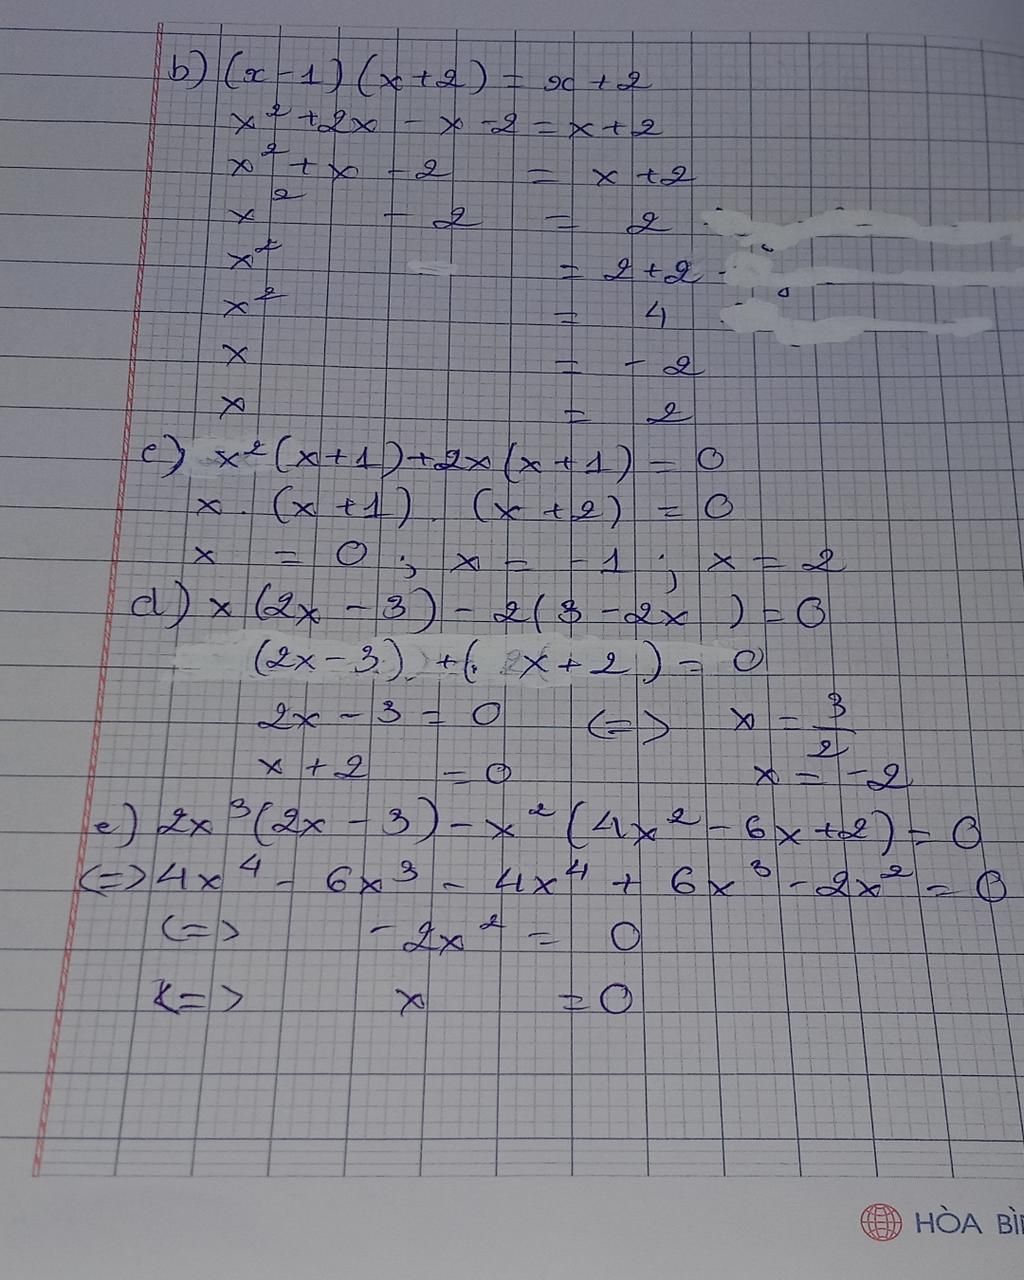 b) (x - 1) (x + 2) = x + 2
x² + 2x - x - 2 = x + 2
x² + x - 2 = x + 2
x² - 2 = 2
x² = 2 + 2
x² = 4
x = - 2
x = 2
c) x² (x + 1) + 2x (x + 1) = 0
x . (x + 1) . (x + 2) = 0
x = 0 ; x = - 1 ; x = 2
d) x (2x - 3) - 2 (3 - 2x ) = 0
(2x - 3) + ( x + 2 ) = 0
2x - 3 = 0 <=> x = 3/2
x + 2 = 0 x = -2
e) 2x³ (2x - 3) - x² (4x² - 6x + 2) = 0
<=> 4x⁴ - 6x³ - 4x⁴ + 6x³ - 2x² = 0
<=> - 2x² = 0
<=> x = 0
HÒA BÌ